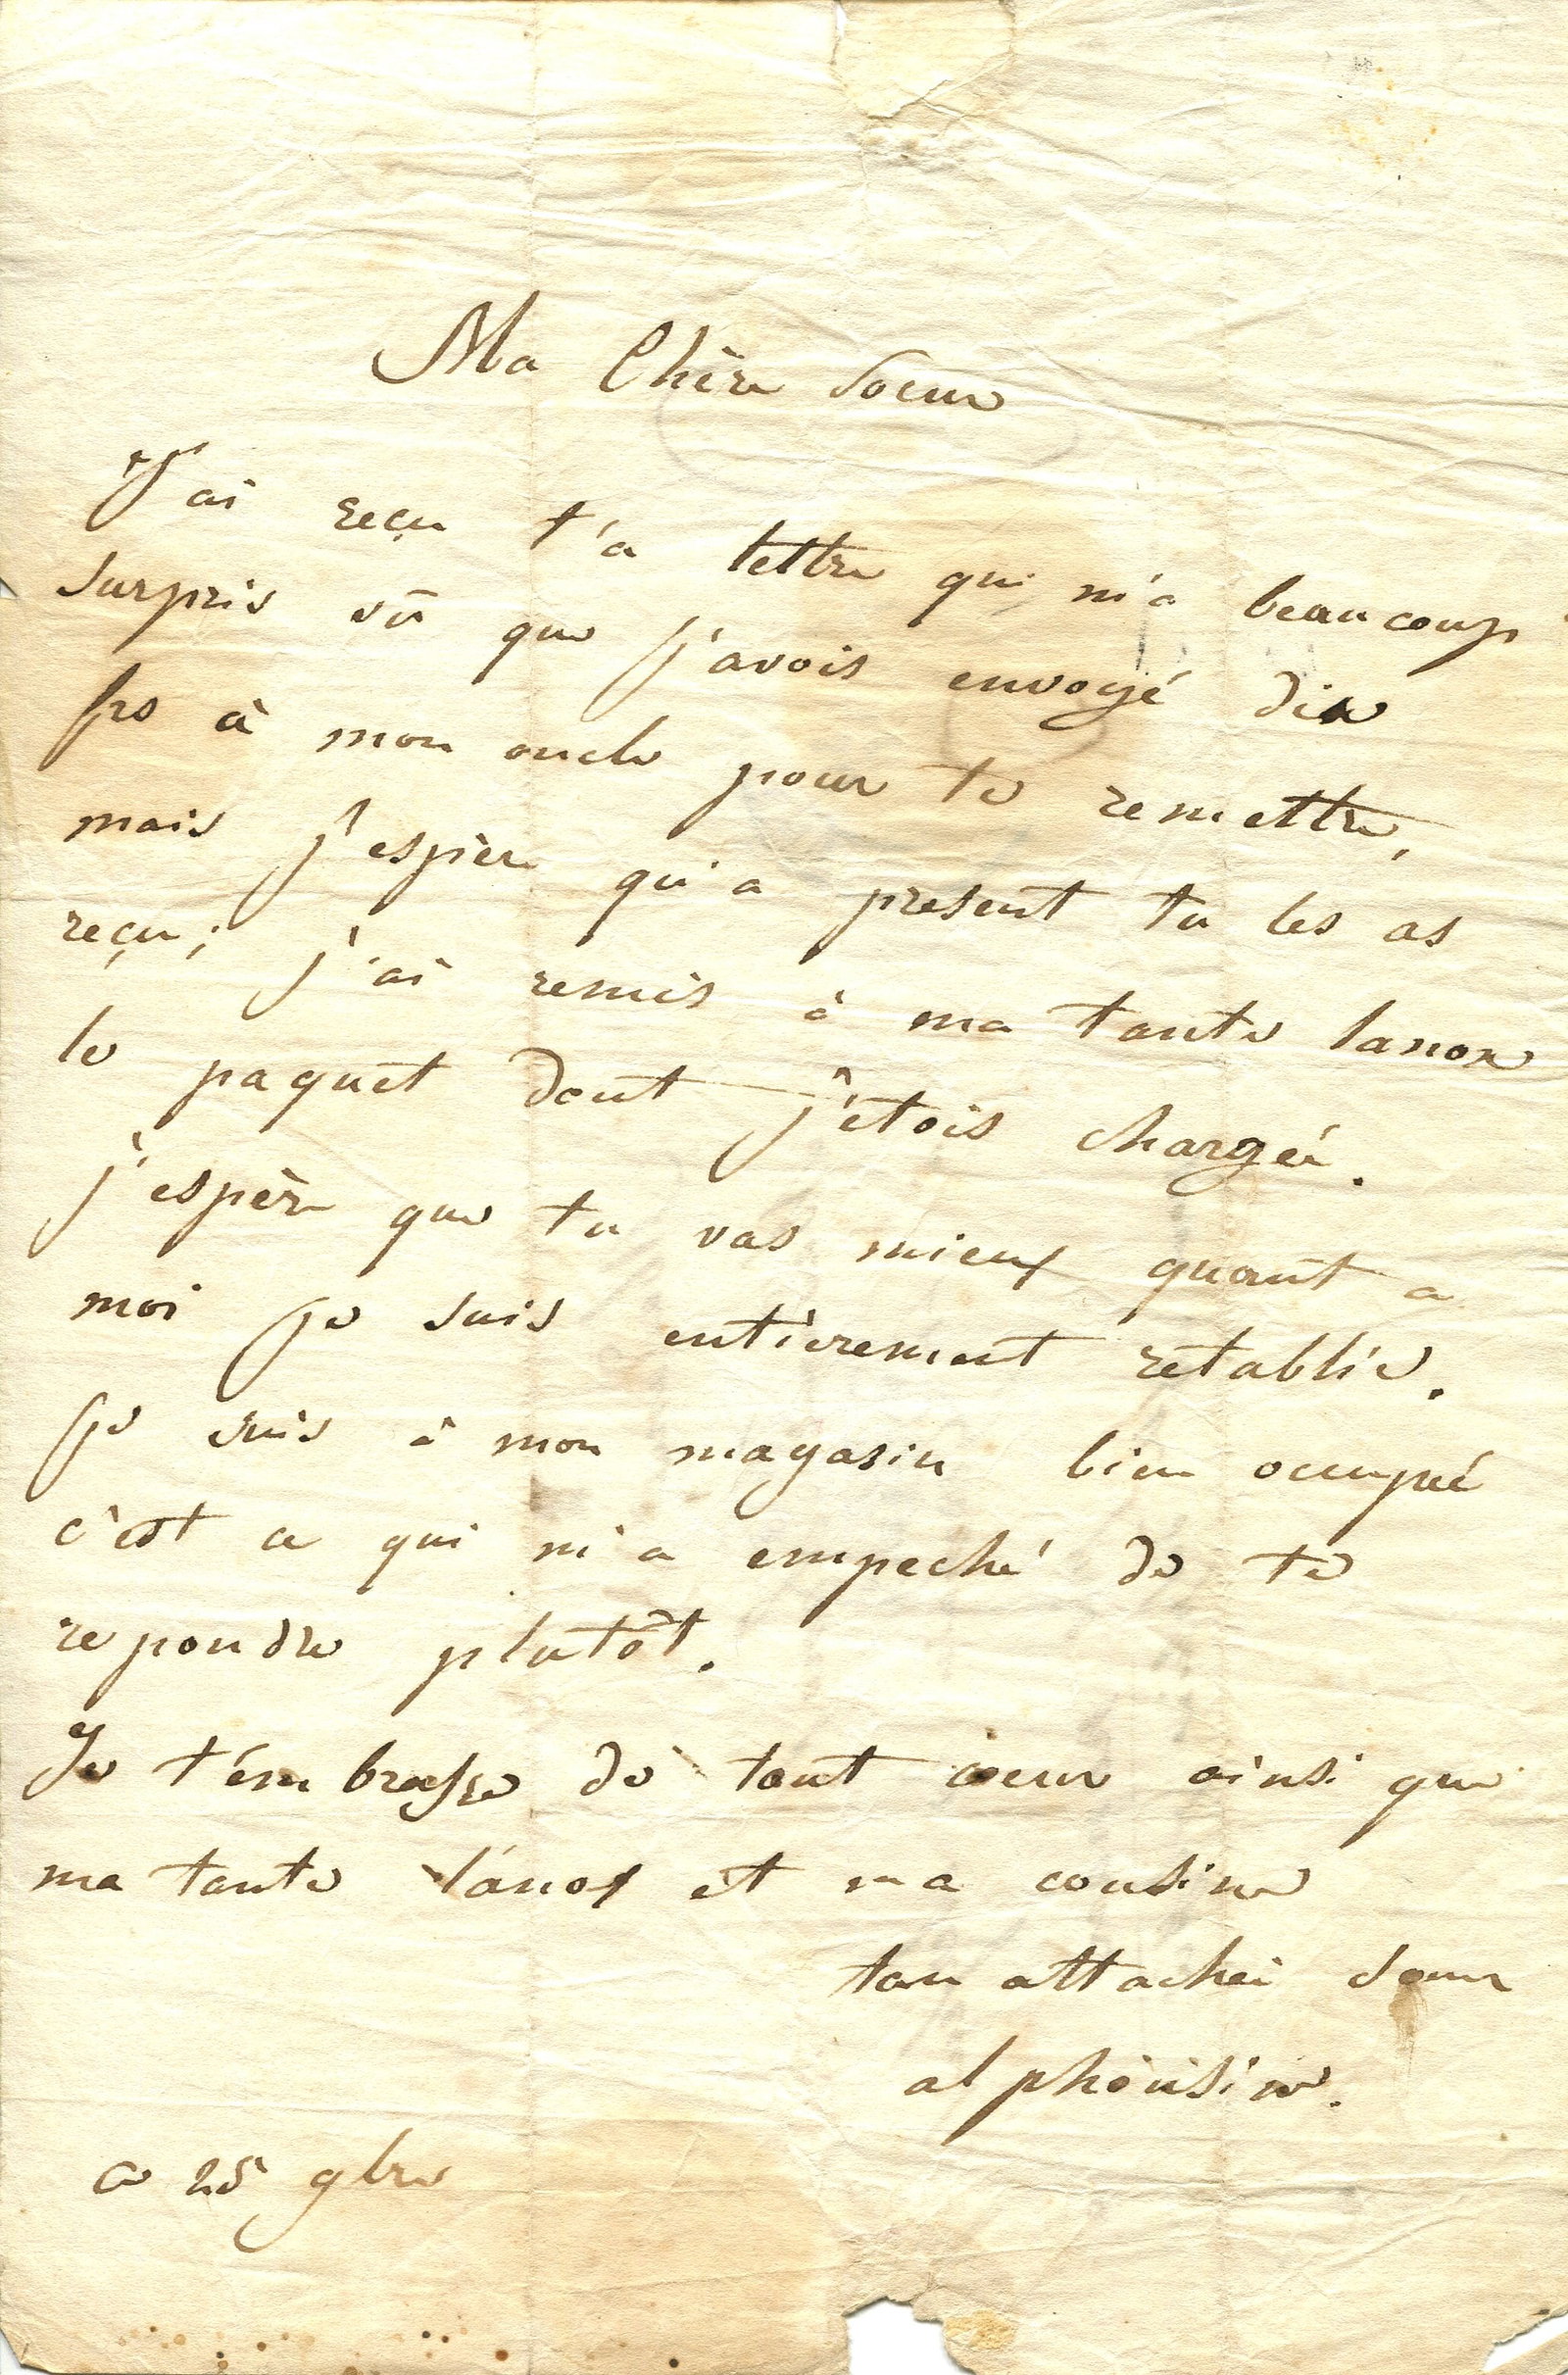 Ma Chère Soeur
J'ai reçu t'a lettre qui m'a beaucoup
surpris vû que j'avois envoyé dix
frs à mon oncle pour te remettre,
mais j'espère qu'a present tu les as
reçu; j'ai remis à ma tante lanox
le paquet dont j'étois chargée.
j'espère que tu vas mieux quant a
moi je suis entièrement retablie.
je suis à mon magasin bien occupée
c'est ce qui m'a empeché de te
repondre plutôt.
Je t'émbrasse de tout coeur ainsi que
ma tante lanox et ma cousine
ton attachée soeur
alphonsine.
ce 25 9bre